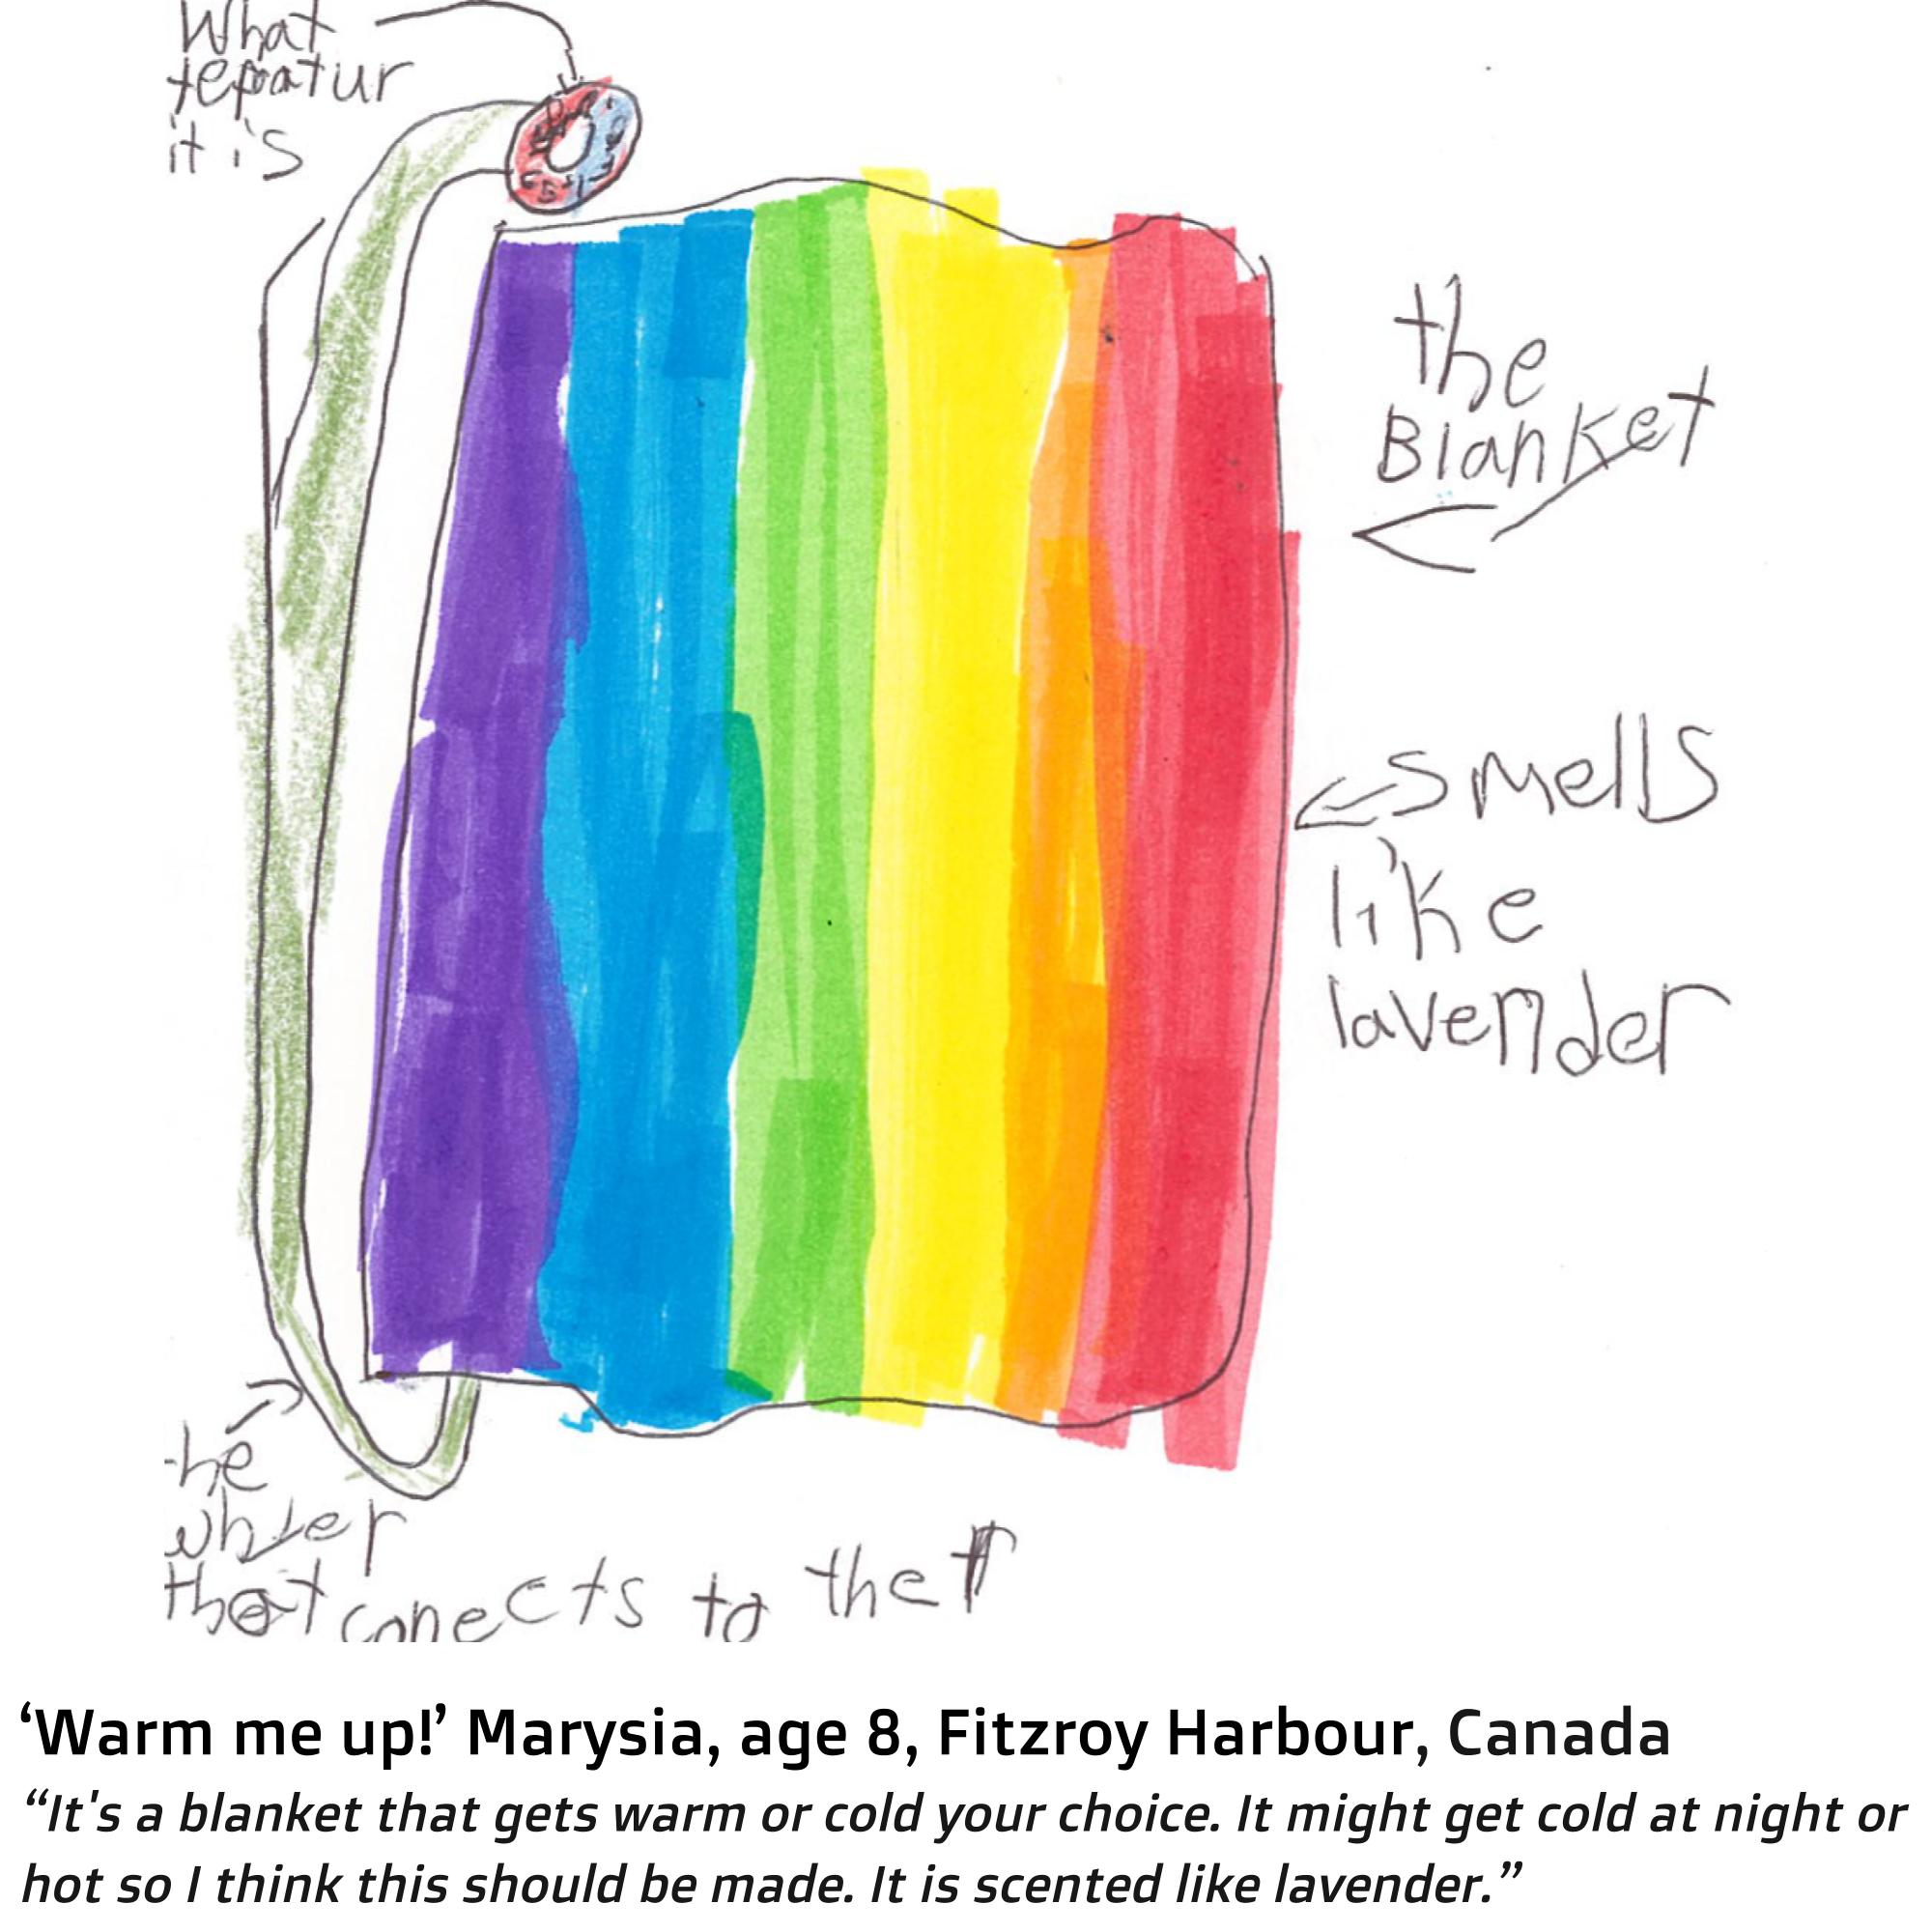 What
tepatur
it is
the
Blanket
smells
like
lavender
he
that conects to the
‘Warm me up!’ Marysia, age 8, Fitzroy Harbour, Canada
“It's a blanket that gets warm or cold your choice. It might get cold at night or
hot so I think this should be made. It is scented like lavender.”